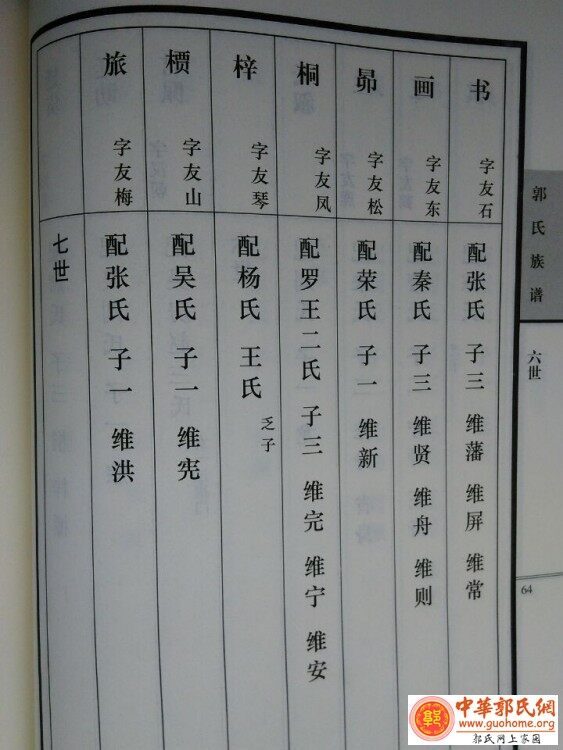 书 字友石 配张氏 子三 维藩 维屏 维常
画 字友东 配秦氏 子三 维贤 维舟 维则
昴 字友松 配荣氏 子一 维新
桐 字友凤 配罗王二氏 子三 维完 维宁 维安
梓 字友琴 配杨氏 王氏 乏子
槚 字友山 配吴氏 子一 维宪
旅 字友梅 配张氏 子一 维洪
七世
郭氏族谱
六世
64
中華郭氏網
www.guohome.org
郭氏网上家园